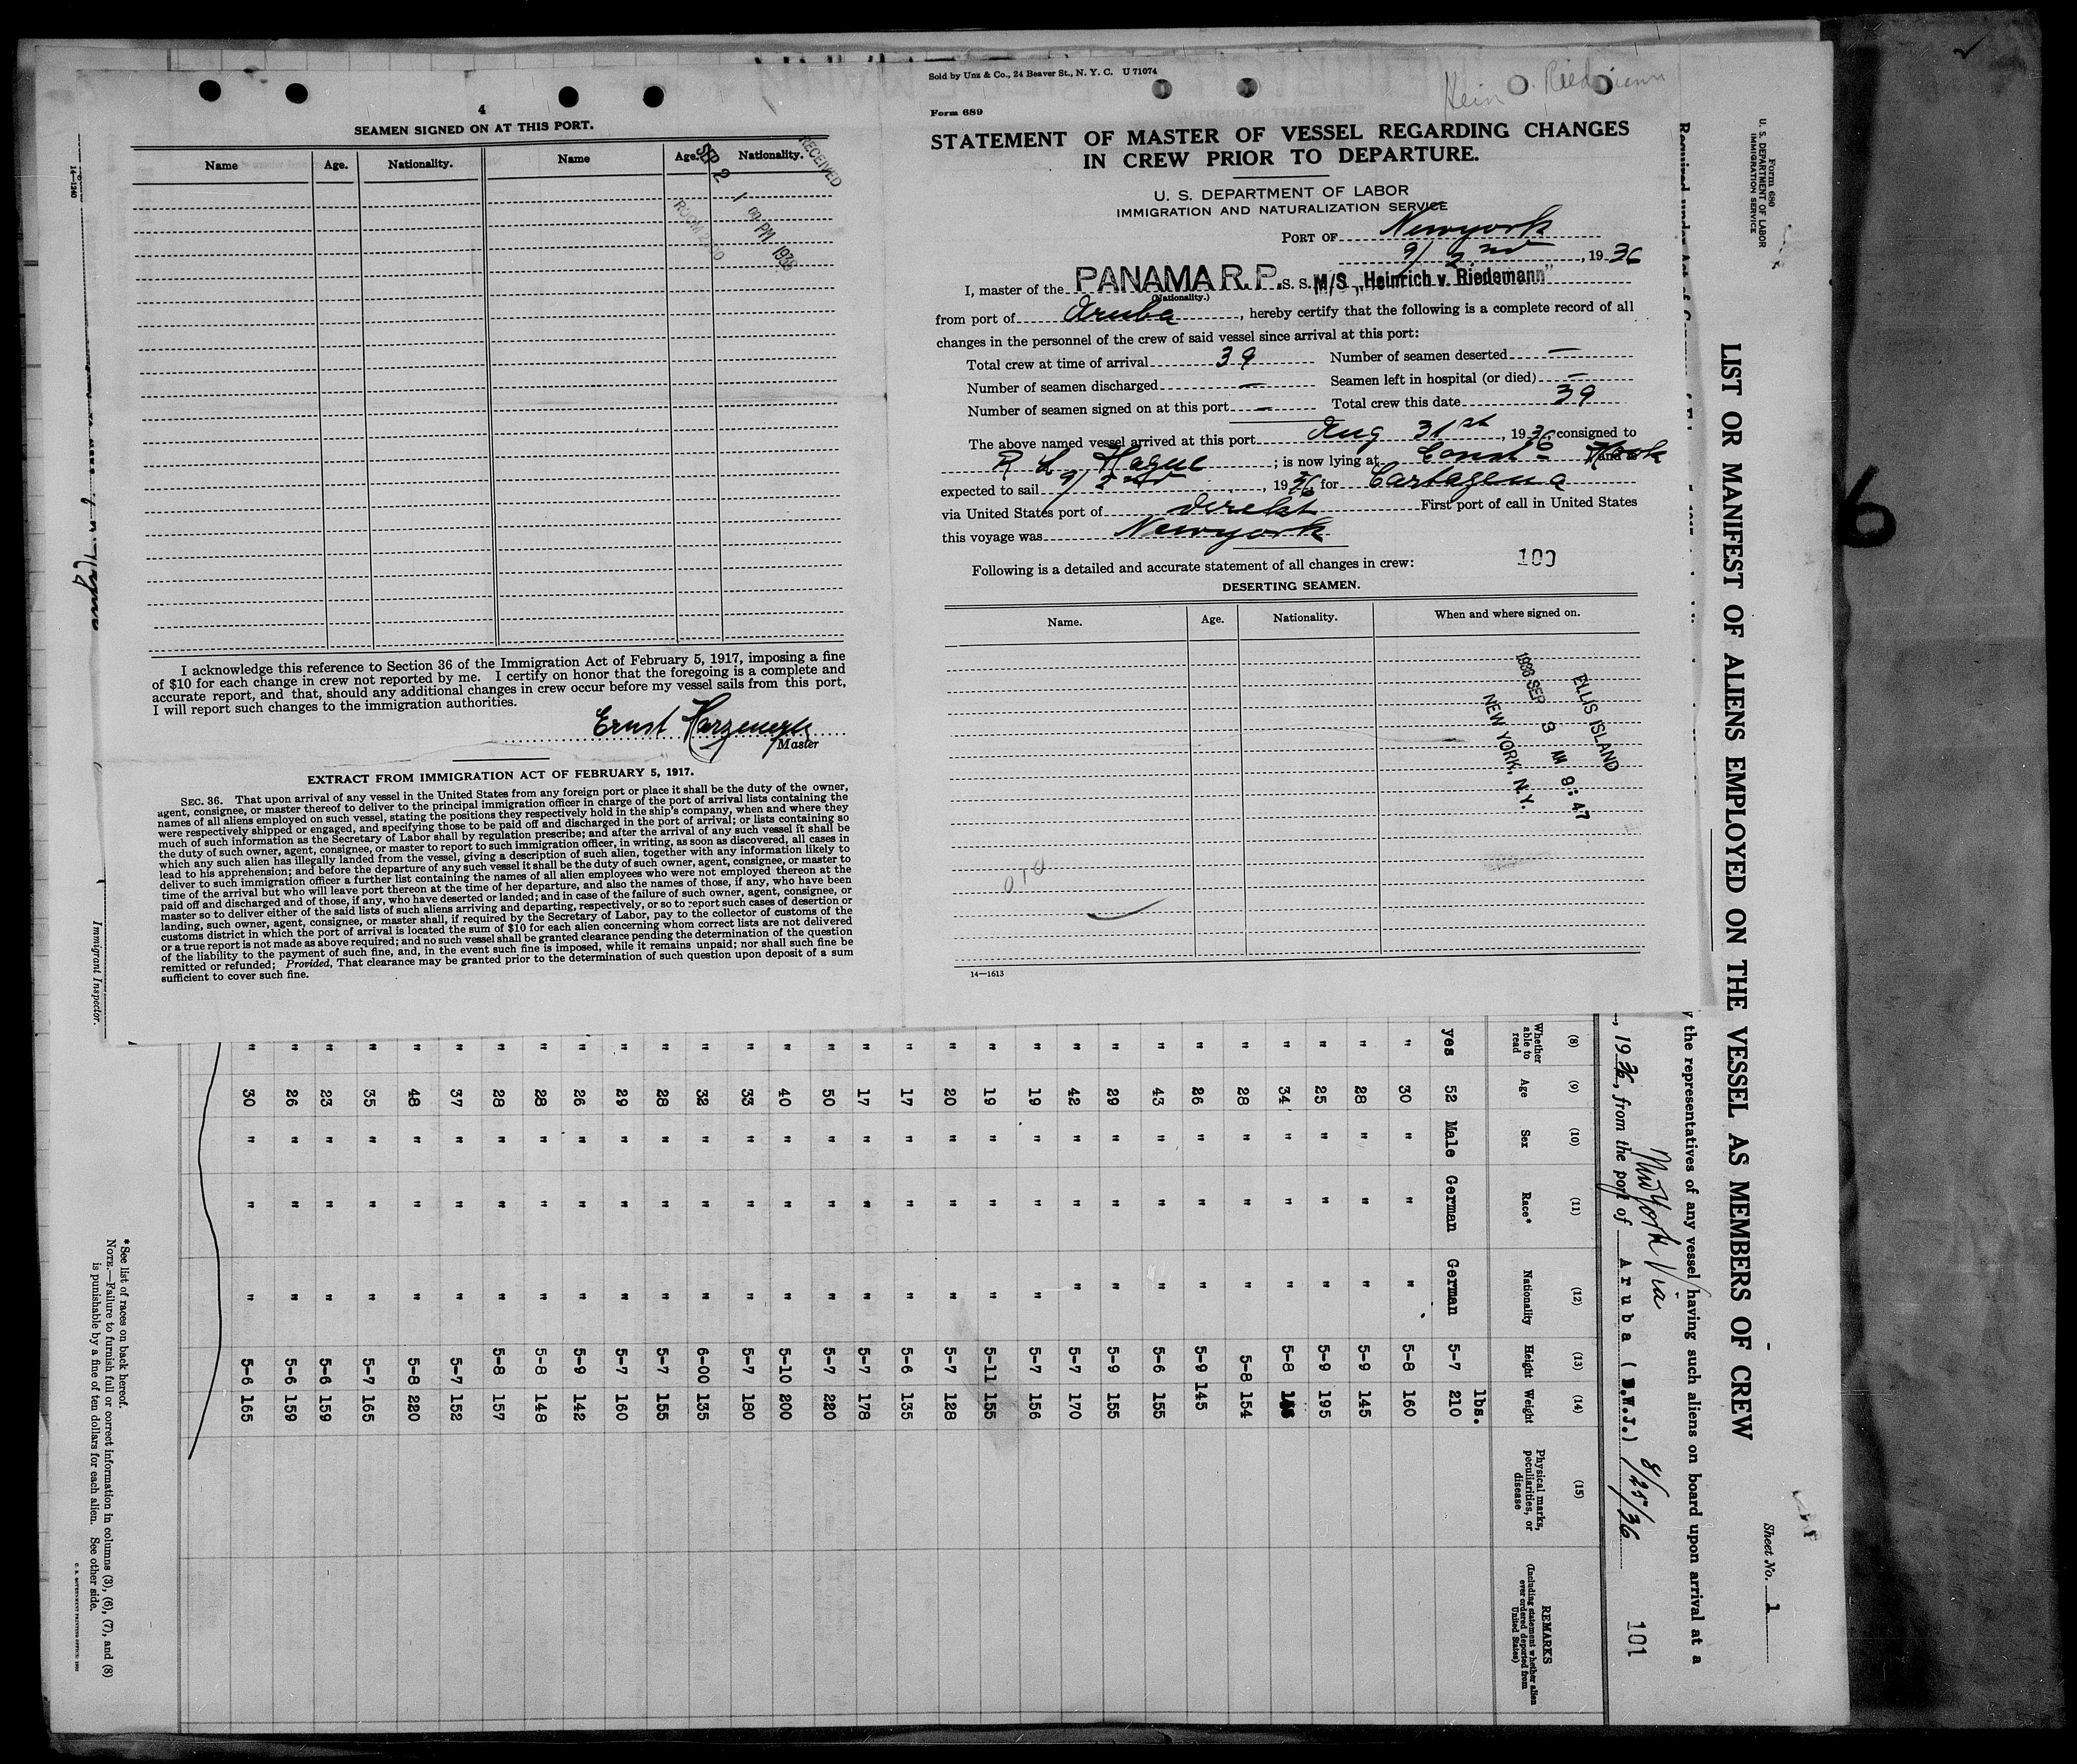 4
SEAMEN SIGNED ON AT THIS PORT.
Name Age. Nationality. Name Age. Nationality.
RECEIVED
SEP 2 1 00 PM 1936
I acknowledge this reference to Section 36 of the Immigration Act of February 5, 1917, imposing a fine
of $10 for each change in crew not reported by me. I certify on honor that the foregoing is a complete and
accurate report, and that, should any additional changes in crew occur before my vessel sails from this port,
I will report such changes to the immigration authorities.
Ernst
Master
EXTRACT FROM IMMIGRATION ACT OF FEBRUARY 5, 1917.
SEC. 36. That upon arrival of any vessel in the United States from any foreign port or place it shall be the duty of the owner,
agent, consignee, or master thereof to deliver to the principal immigration officer in charge of the port of arrival lists containing the
names of all aliens employed on such vessel, stating the positions they respectively hold in the ship's company, when and where they
were respectively shipped or engaged, and specifying those to be paid off and discharged in the port of arrival; or lists containing so
much of such information as the Secretary of Labor shall by regulation prescribe; and after the arrival of any such vessel it shall be
the duty of such owner, agent, consignee, or master to report to such immigration officer, in writing, as soon as discovered, all cases in
which any such alien has illegally landed from the vessel, giving a description of such alien, together with any information likely to
lead to his apprehension; and before the departure of any such vessel it shall be the duty of such owner, agent, consignee, or master to
deliver to such immigration officer a further list containing the names of all alien employees who were not employed thereon at the
time of the arrival but who will leave port thereon at the time of her departure, and also the names of those, if any, who have been
paid off and discharged and of those, if any, who have deserted or landed; and in case of the failure of such owner, agent, consignee, or
master so to deliver either of the said lists of such aliens arriving and departing, respectively, or so to report such cases of desertion or
landing, such owner, agent, consignee, or master shall, if required by the Secretary of Labor, pay to the collector of customs of the
customs district in which the port of arrival is located the sum of $10 for each alien concerning whom correct lists are not delivered
or a true report is not made as above required; and no such vessel shall be granted clearance pending the determination of the question
of the liability to the payment of such fine, and, in the event such fine is imposed, while it remains unpaid; nor shall such fine be
remitted or refunded; Provided, That clearance may be granted prior to the determination of such question upon deposit of a sum
sufficient to cover such fine.
14—1240
Immigrant Inspector.
Sold by Unz & Co., 24 Beaver St., N. Y. C. U 71074
Hein v. Riedemann
Form 689
STATEMENT OF MASTER OF VESSEL REGARDING CHANGES
IN CREW PRIOR TO DEPARTURE.
U. S. DEPARTMENT OF LABOR
IMMIGRATION AND NATURALIZATION SERVICE
PORT OF Newyork
9/2nd, 1936
I, master of the PANAMA R.P. S. S. M/S „Heinrich v. Riedemann"
(Nationality.)
from port of Aruba, hereby certify that the following is a complete record of all
changes in the personnel of the crew of said vessel since arrival at this port:
Total crew at time of arrival 39 Number of seamen deserted —
Number of seamen discharged — Seamen left in hospital (or died) —
Number of seamen signed on at this port — Total crew this date 39
The above named vessel arrived at this port Aug 31st, 1936, consigned to
R L Hague; is now lying at Const. Hook and is
expected to sail 9/2nd, 1936, for Cartagena
via United States port of direkt First port of call in United States
this voyage was Newyork
Following is a detailed and accurate statement of all changes in crew: 100
DESERTING SEAMEN.
Name. Age. Nationality. When and where signed on.
ELLIS ISLAND
1936 SEP 3 AM 9:47
NEW YORK, N. Y.
14—1613
Form 680
U. S. DEPARTMENT OF LABOR
IMMIGRATION SERVICE
Sheet No. 1
LIST OR MANIFEST OF ALIENS EMPLOYED ON THE VESSEL AS MEMBERS OF CREW
the representatives of any vessel having such aliens on board upon arrival at a
New York Via
, 1936, from the port of Aruba (N.W.J.) 8/25/36
101
(8) (9) (10) (11) (12) (13) (14) (15)
Whether able to read Age Sex Race* Nationality Height Weight Physical marks, peculiarities, or disease REMARKS (Including statement whether alien ever ordered deported from United States)
lbs.
yes 52 Male German German 5-7 210
" 30 " " " 5-8 160
" 28 " " " 5-9 145
" 25 " " " 5-9 195
" 34 " " " 5-8
" 28 " " " 5-8 154
" 26 " " " 5-9 145
" 43 " " " 5-6 155
" 29 " " " 5-9 155
" 42 " " " 5-7 170
" 19 " " " 5-7 156
" 19 " " " 5-11 155
" 20 " " " 5-7 128
" 17 " " " 5-6 135
" 17 " " " 5-7 178
" 50 " " " 5-7 220
" 40 " " " 5-10 200
" 33 " " " 5-7 180
" 32 " " " 6-00 135
" 28 " " " 5-7 155
" 29 " " " 5-7 160
" 26 " " " 5-9 142
" 28 " " " 5-8 148
" 28 " " " 5-8 157
" 37 " " " 5-7 152
" 48 " " " 5-8 220
" 35 " " " 5-7 165
" 23 " " " 5-6 159
" 26 " " " 5-6 159
" 30 " " " 5-6 165
*See list of races on back hereof.
NOTE.—Failure to furnish full or correct information in columns (3), (6), (7), and (8)
is punishable by a fine of ten dollars for each alien. See other side.
6